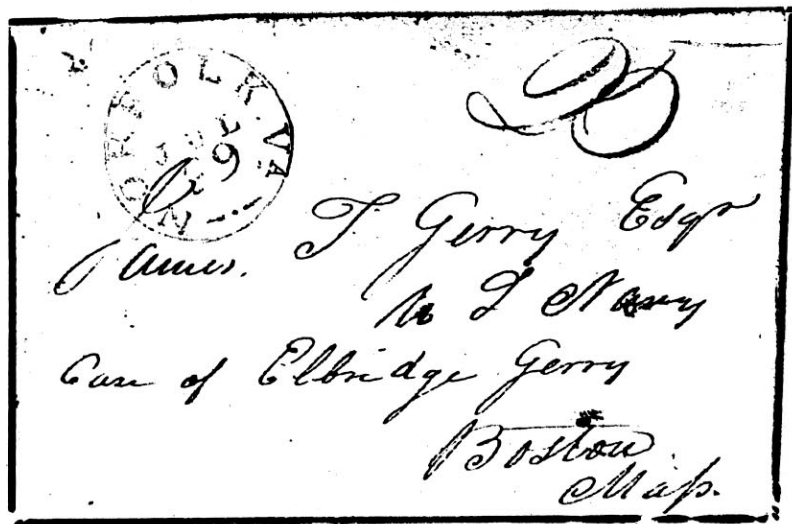 NORFOLK VA
James. T Gerry Esqr
U S Navy
Care of Elbridge Gerry
Boston
Mass.